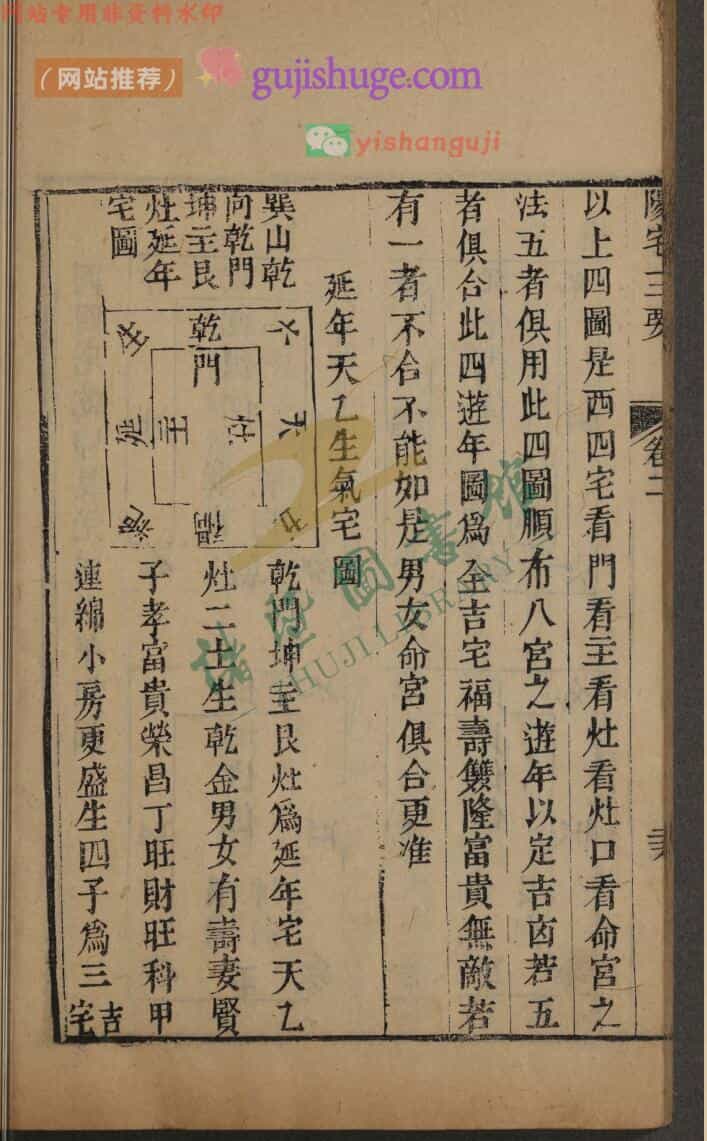 网站专用非资料水印
（网站推荐）
gujishuge.com
yishanguji
陽宅三要
卷二
以上四圖是西四宅看門看主看灶看灶口看命宮之
法五者俱用此四圖順布八宮之遊年以定吉凶若五
者俱合此四遊年圖爲全吉宅福壽雙隆富貴無敵若
有一者不合不能如是男女命宮俱合更准
延年天乙生氣宅圖
巽山乾
向乾門
坤主艮
灶延年
宅圖
六
乾
門
天
灶
主
延
禍
乾門坤主艮灶爲延年宅天乙
灶二土生乾金男女有壽妻賢
子孝富貴榮昌丁旺財旺科甲
連綿小房更盛生四子爲三吉
宅
書館
SHUJI LIBRARY